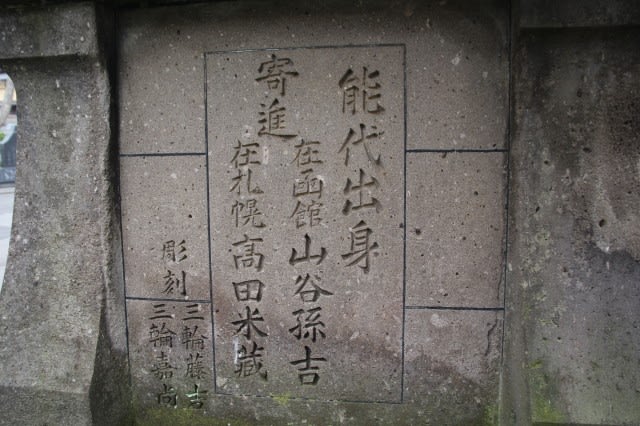 能代出身
寄進
在函館 山谷孫吉
在札幌 高田米藏
彫刻
三輪藤吉
三輪嘉尚